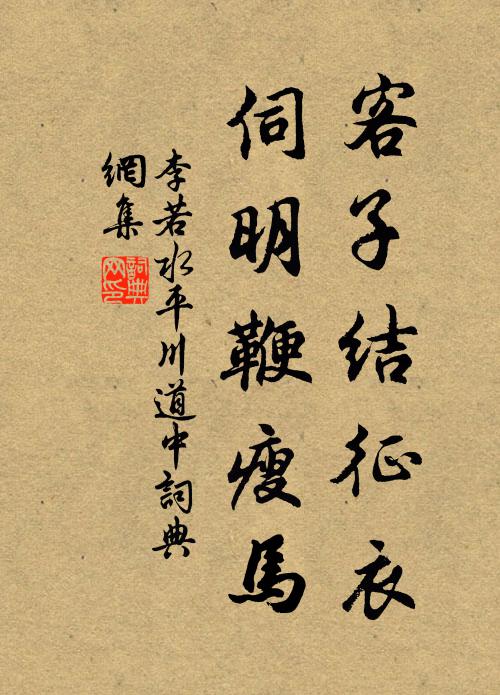 客子结征衣
伺明鞭瘦馬
李若水平川道中詞典
網集
詞典
网印